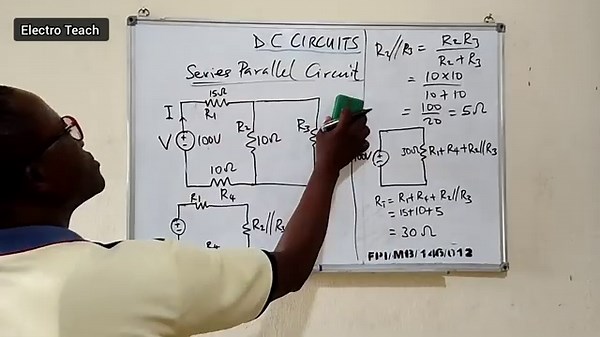 Electro Teach
D C CIRCUITS
Series Parallel Circuit
15Ω
I
R1
V
100V
R2
10Ω
R3
10Ω
R4
R1
R2//R3
R4
R2//R3 = R2R3
R2 + R3
= 10x10
10 + 10
= 100
20 = 5Ω
30Ω R1+R4+R2//R3
RT = R1+R4+R2//R3
= 15+10+5
= 30Ω
FPI/MB/146/012